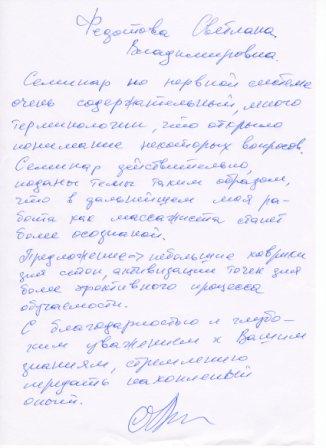 Федотова Светлана
Владимировна.
Семинар по нервной системе
очень содержательный, много
терминологии, что открыло
понимание некоторых вопросов.
Семинар действительно,
поданы темы таким образом,
что в дальнейшем моя ра-
бота как массажиста станет
более осознаной.
Предложение - небольшие коврики
для стоп, активизации точек для
более эфективного процесса
обучаемости.
С благодарностью и глубо-
ким уважением к Вашим
знаниям, стремлению
передать накопленый
опыт.